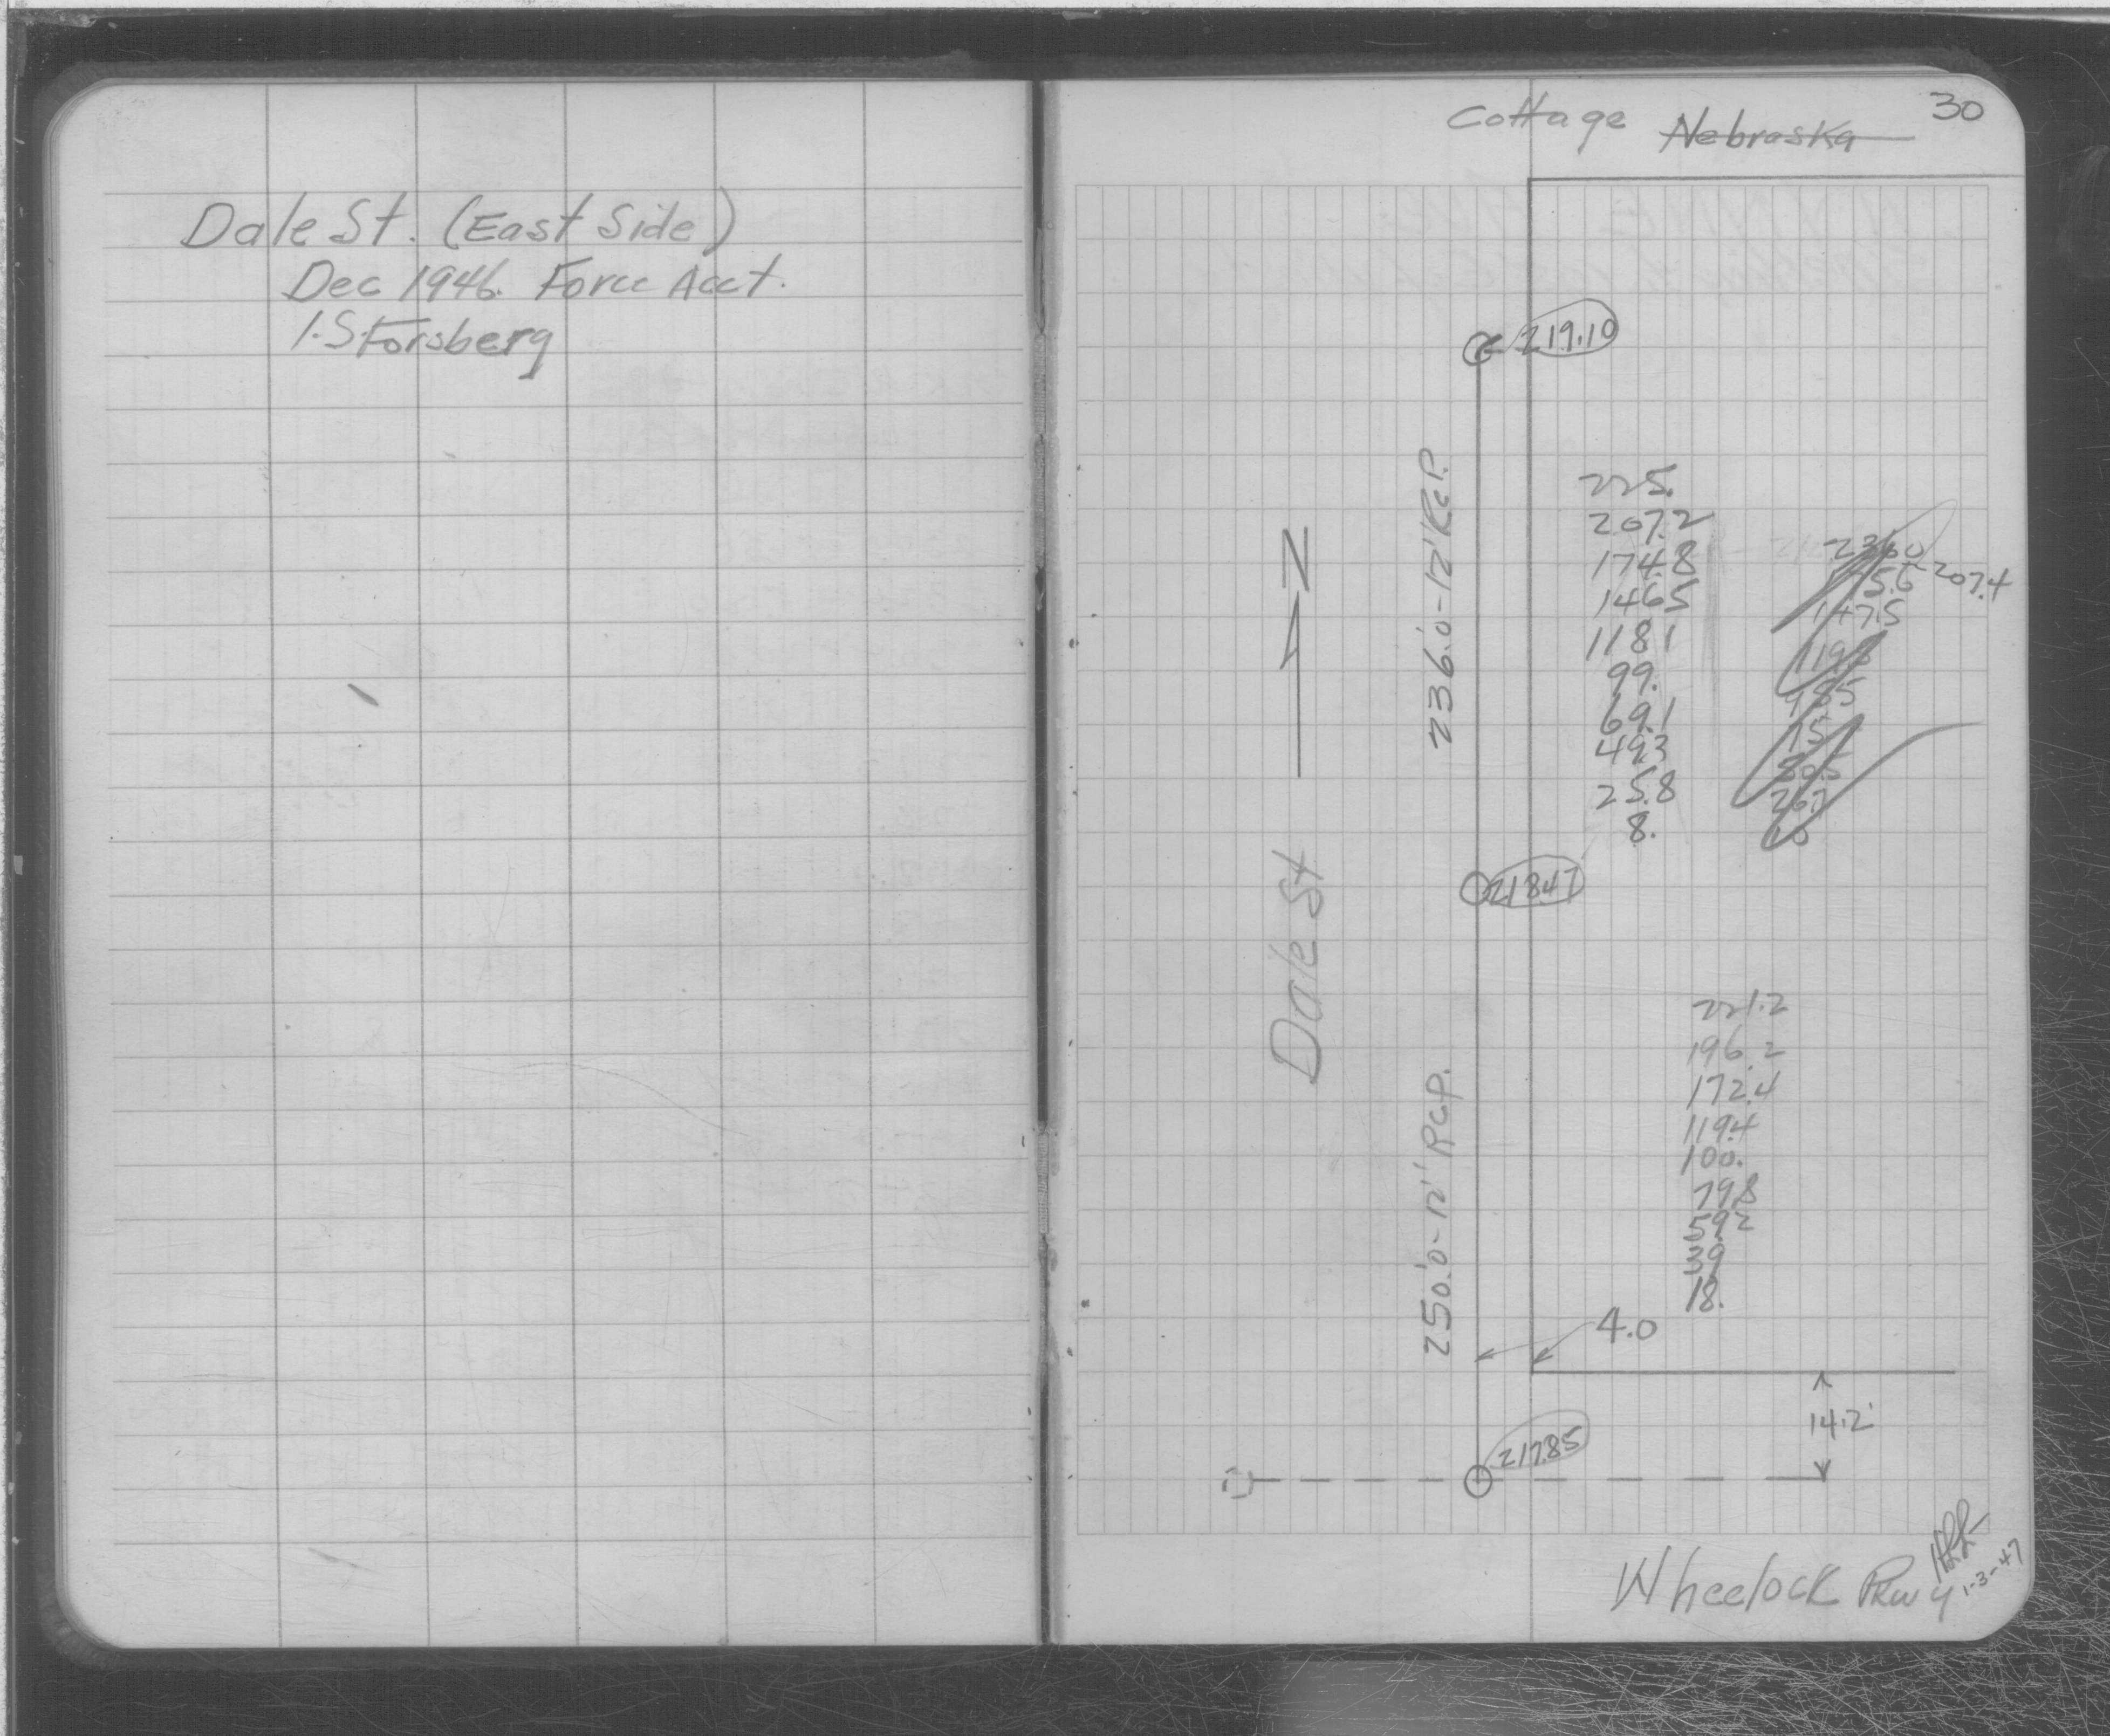 Dale St. (East Side)
Dec 1946. Force Acct.
I.S. Forsberg
30
Cottage Nebraska
219.10
236.0'-12" RCP.
N
225.
207.2
174.8
146.5
118.1
99.
69.1
49.3
25.8
8.
236.0
207.4
147.5
218.47
Dale St
250.0'-12" RCP.
221.2
196.2
172.4
119.4
100.
79.8
59.2
39
18.
4.0
14.2'
217.85
Wheelock Pkwy
1-3-47